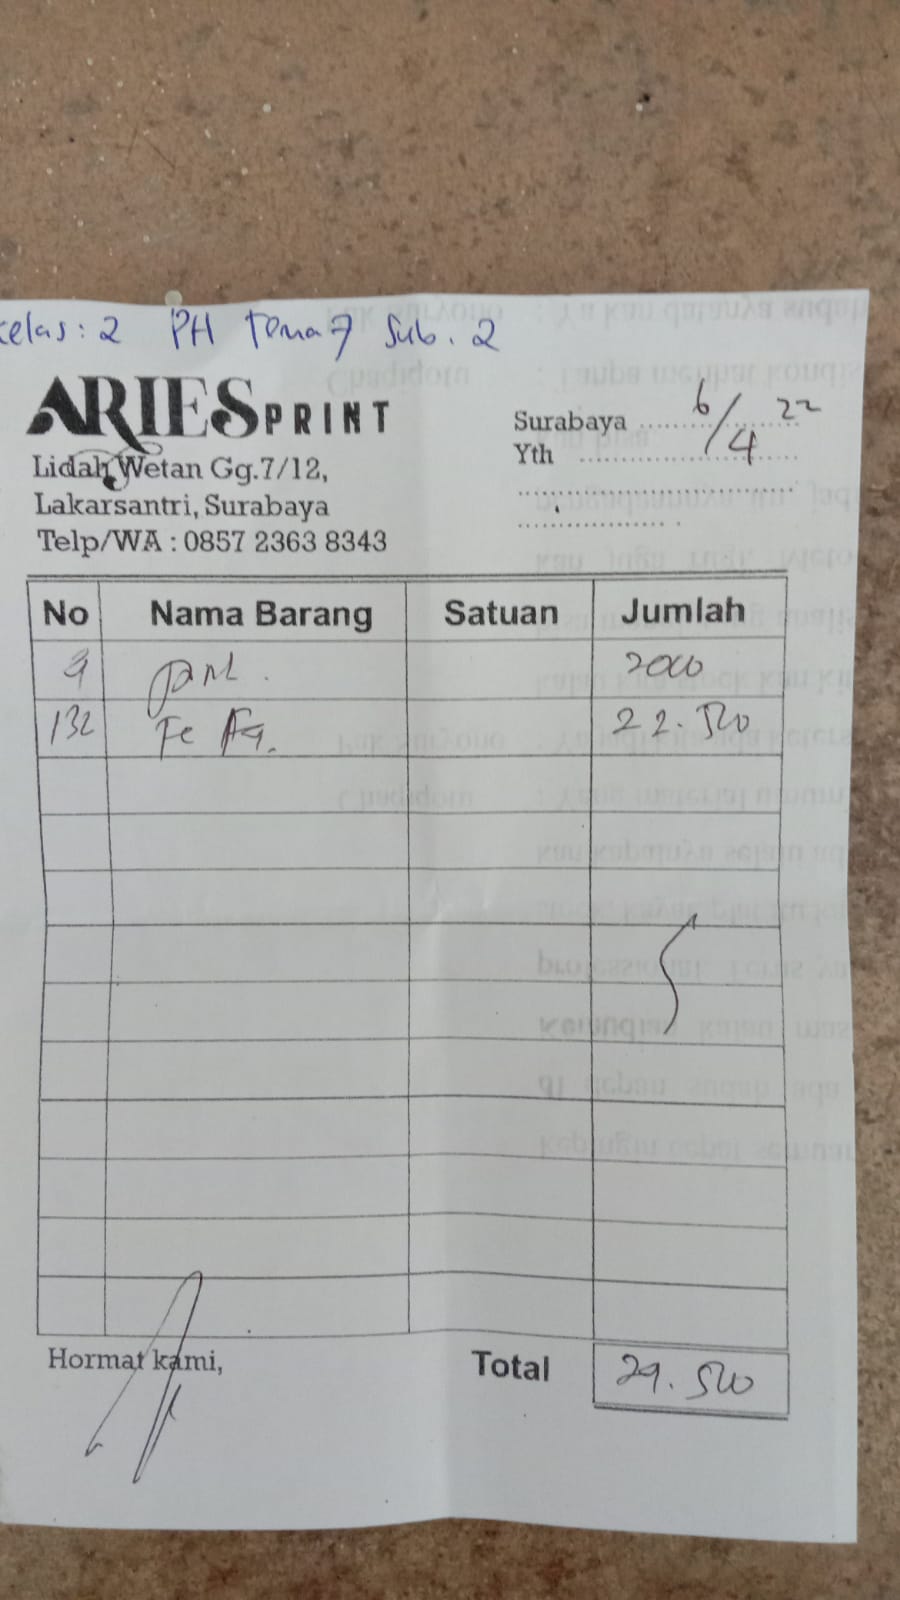 kelas: 2 PH Tema 7 Sub. 2
ARIES PRINT
Lidah Wetan Gg.7/12,
Lakarsantri, Surabaya
Telp/WA : 0857 2363 8343
Surabaya 6/4 22
Yth
No Nama Barang Satuan Jumlah
2000
132 22.500
Hormat kami,
Total 24.500